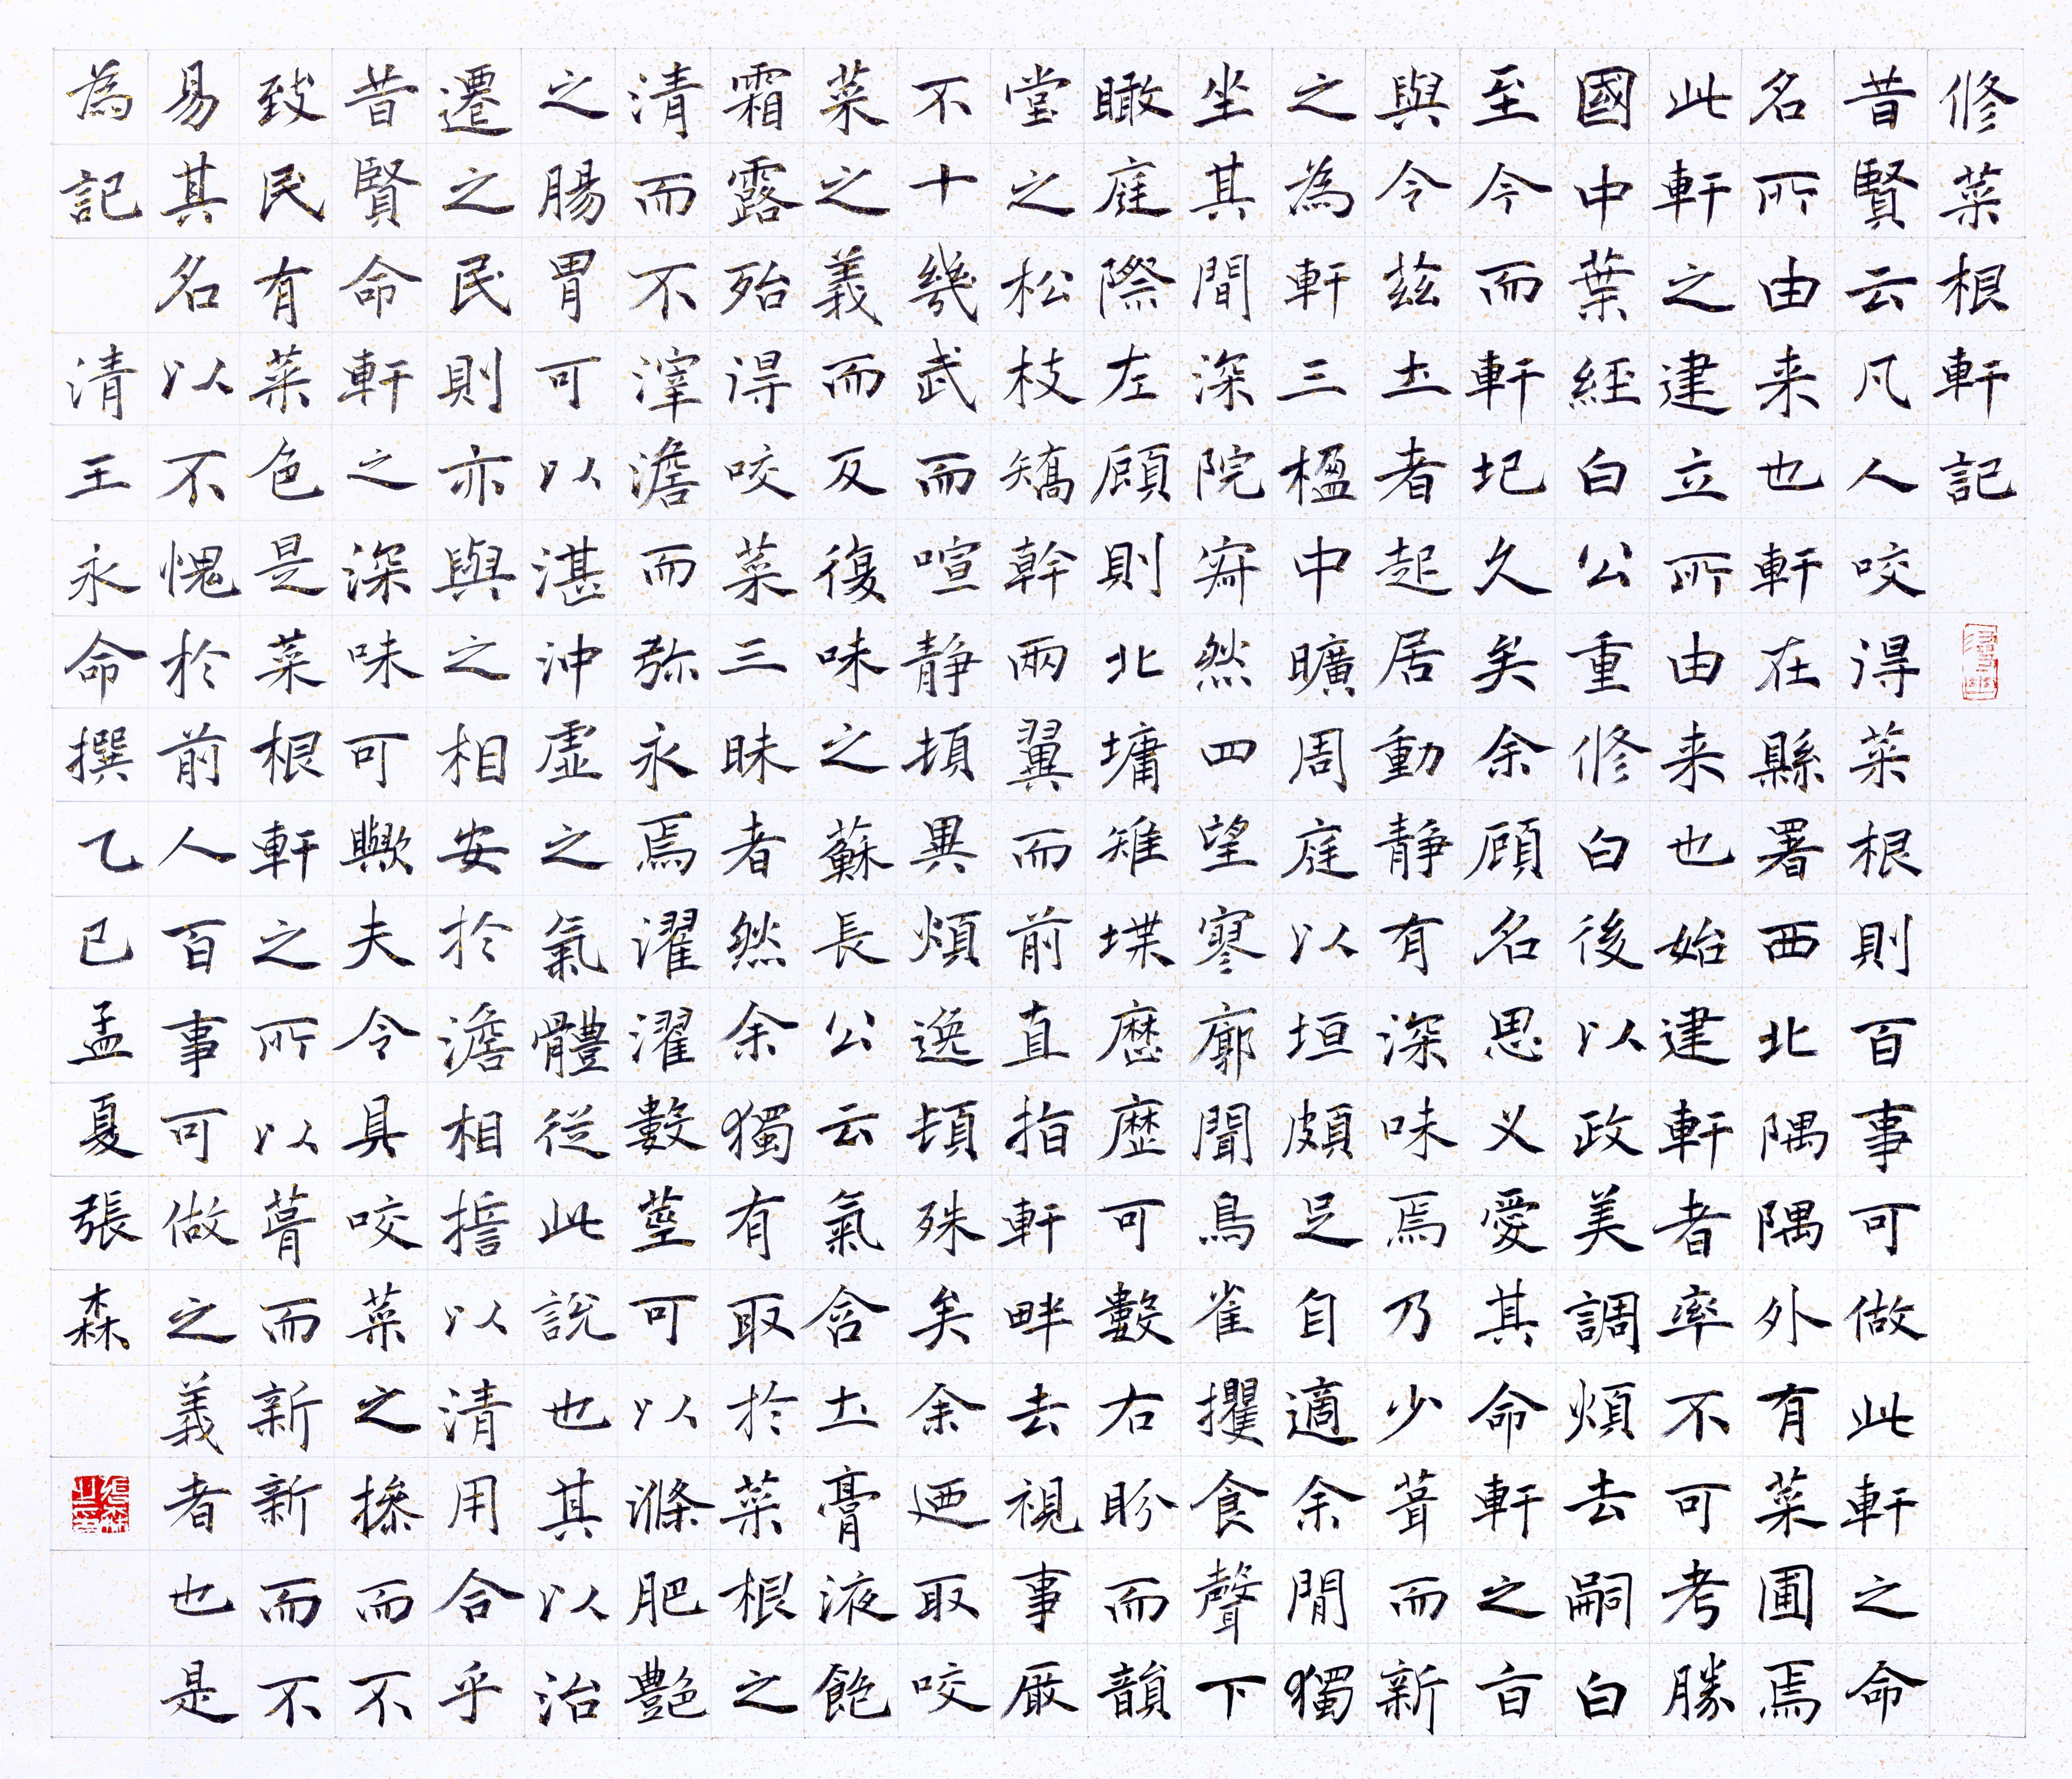 修菜根軒記
昔賢云凡人咬得菜根則百事可做此軒之命
名所由来也軒在縣署西北隅隅外有菜圃焉
此軒之建立所由来也始建軒者率不可考勝
國中葉經白公重修白後以政美調煩去嗣白
至今而軒圮久矣余顧名思义愛其命軒之㫖
與令茲土者起居動静有深味焉乃少葺而新
之為軒三楹中曠周庭以垣頗足自適余閒獨
坐其間深院寂然四望寥廓聞鳥雀攫食聲下
瞰庭際左顧則北墉雉堞歷歷可數右盼而韻
堂之松枝矯幹兩翼而前直指軒畔去視事厰
不十幾武而喧静頓異煩逸頓殊矣余迺取咬
菜之義而反復味之蘇長公云氣含土膏液飽
霜露殆得咬菜三昧者然余獨有取於菜根之
清而不滓澹而弥永焉濯濯數莖可以滌肥艷
之腸胃可以湛沖虛之氣體從此說也其以治
遷之民則亦與之相安於澹相以清用合乎
昔賢命軒之深味可歟夫令具咬菜之操而不
致民有菜色是菜根軒之所以葺而新新而不
易其名以不愧於前人百事可做之義者也是
為記 清王永命撰乙巳孟夏張森